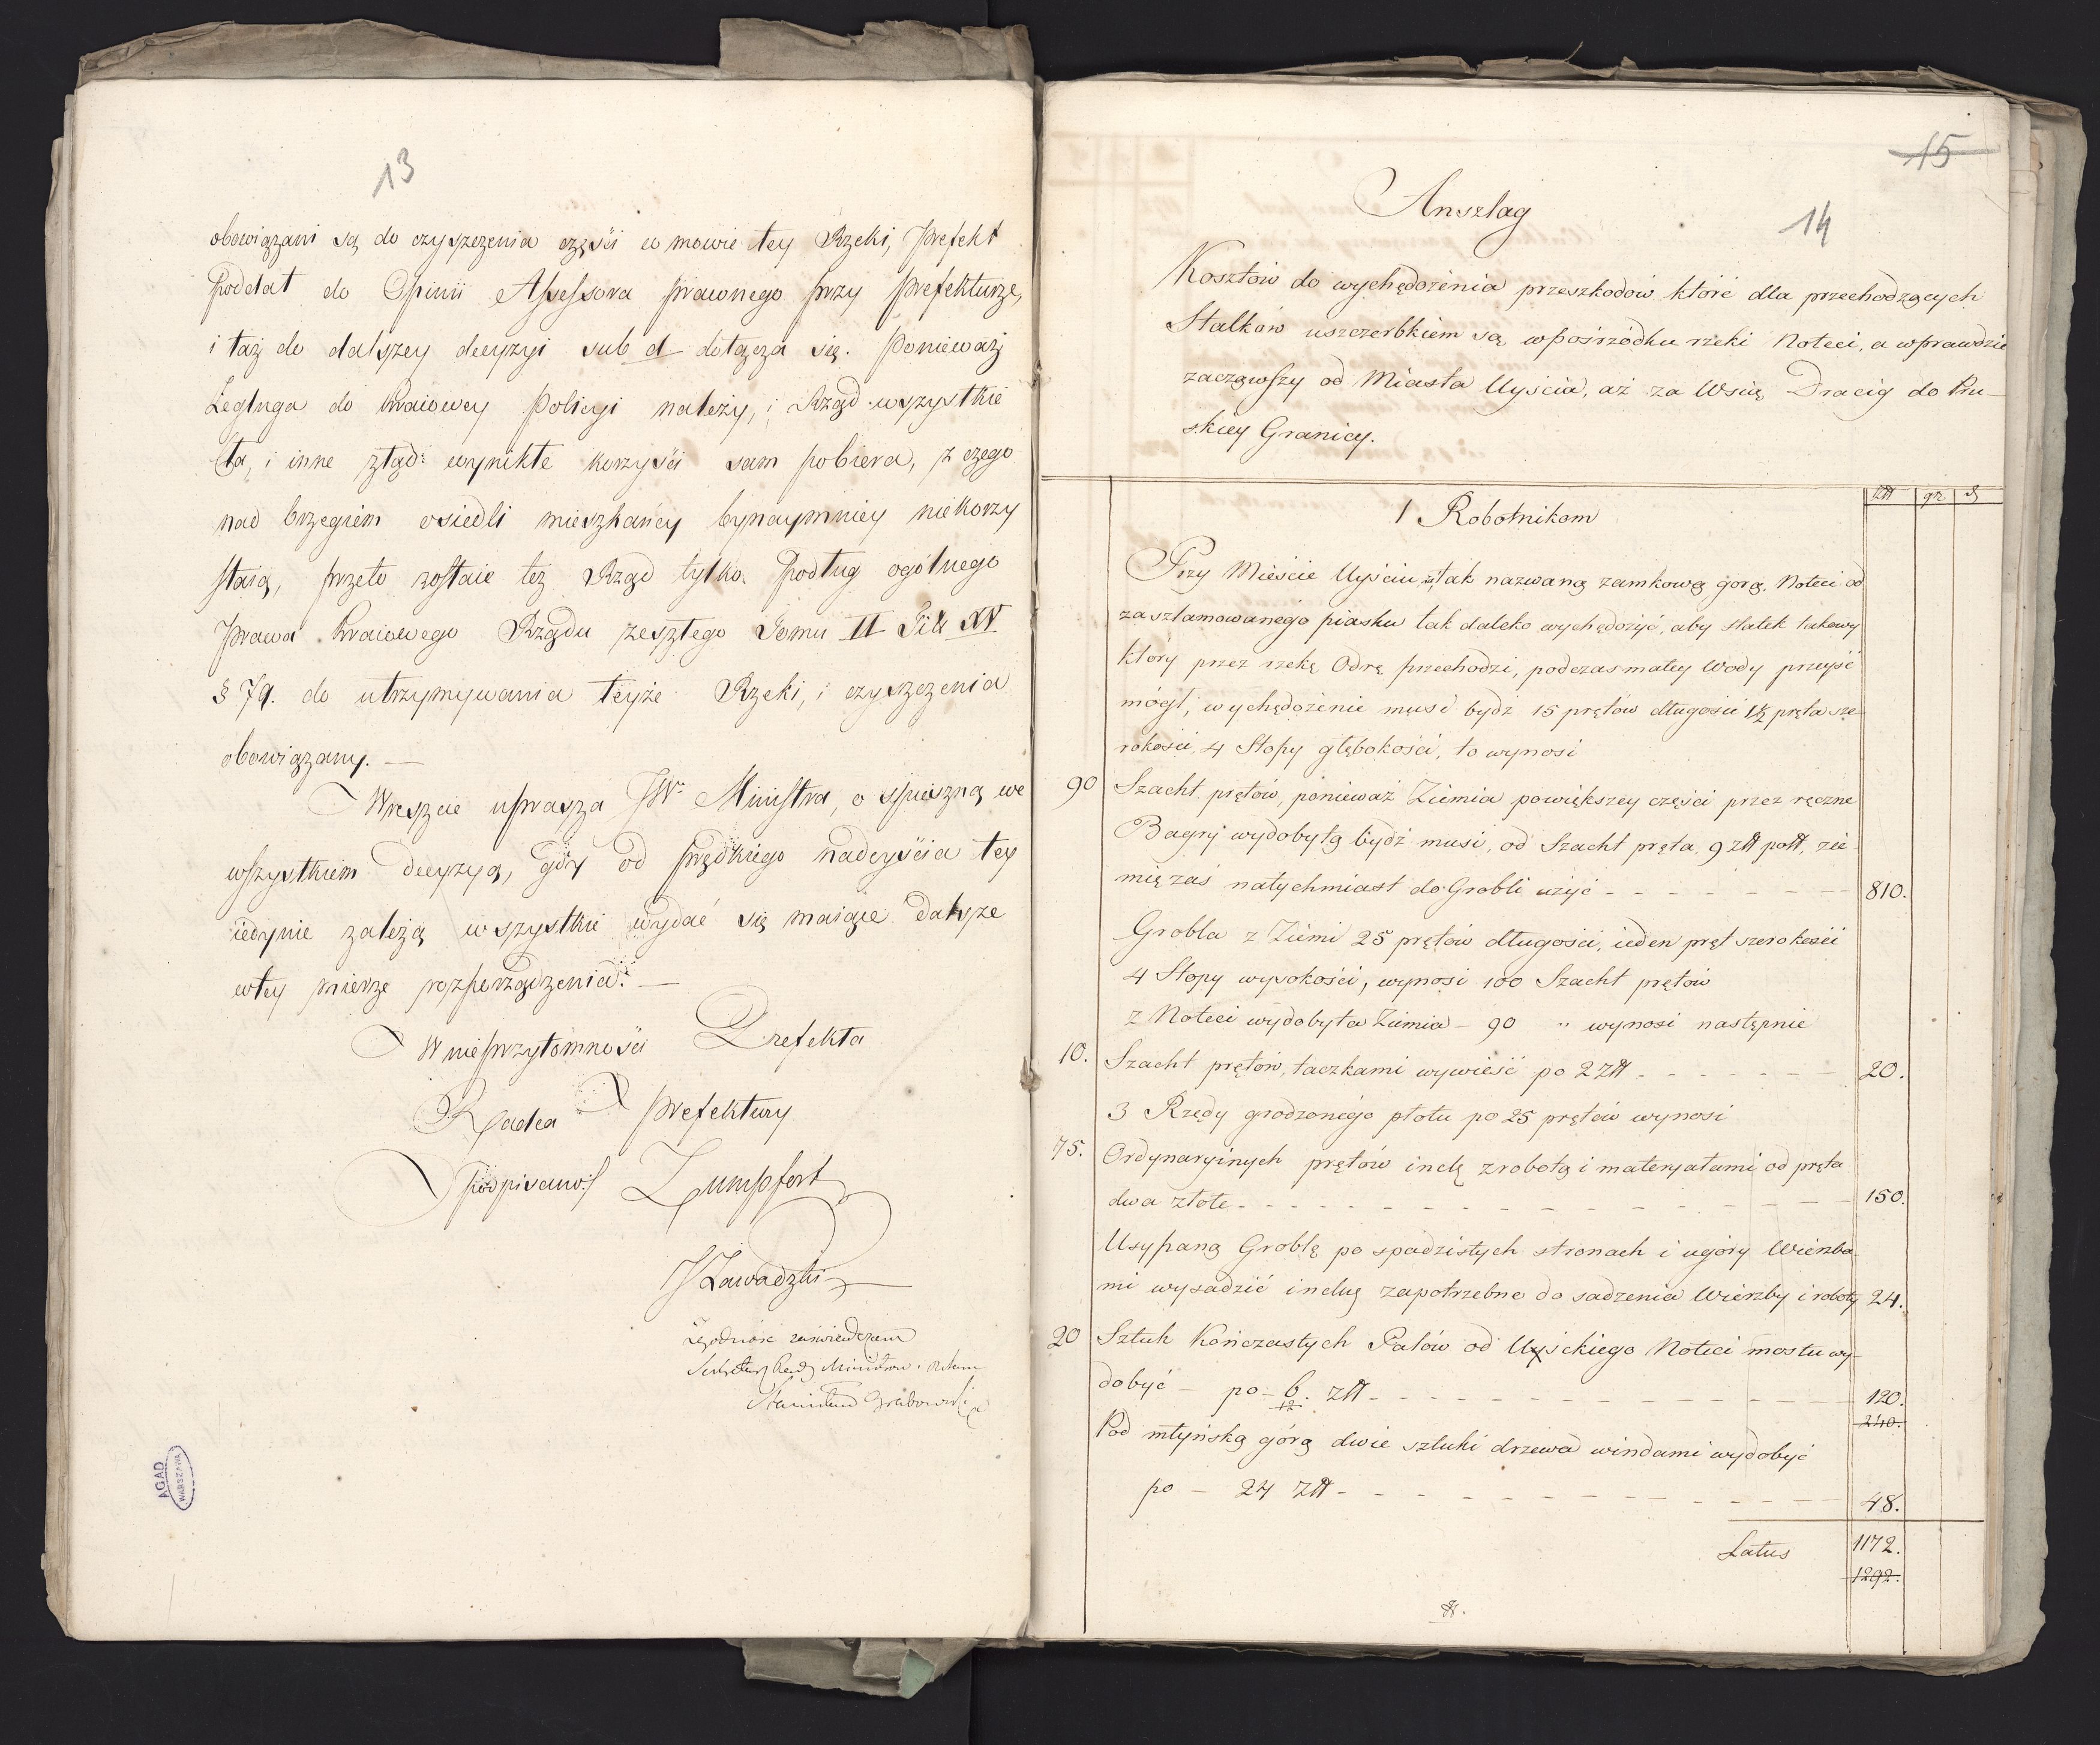 13
obowiązani są do czyszczenia części w mowie tey Rzeki, Prefekt
Poddał do Opinii Assessora prawnego przy Prefekturze,
i taż do dalszey decyzyi sub d dołącza się. Ponieważ
Żegluga do kraiowey Policyi należy, i Rząd wszystkie
Cła, i inne ztąd wynikłe korzyści sam pobiera, z czego
nad brzegiem osiedli mieszkańcy bynaymniey niekorzy
staią, przeto zostaie też Rząd tylko Podług ogólnego
Prawa kraiowego Rządu zeszłego Tomu II Titt XV
§ 79. do utrzymywania teyże Rzeki, i czyszczenia
obowiązany. —
Wreszcie uprasza JW. Ministra, o spieszną we
wszystkiem decyzyą, gdy od prędkiego nadeyścia tey
iedynie zależą wszystkie wydać się maiące dalsze
wtey mierze rozporządzenia. —
W nieprzytomności Prefekta
Radca Prefektury
podpisano Zumpfort
J Zawadzki
Zgodność zaświadczam
Sekretarz Rady Ministrów
Stanisław Grabowski
AGAD
WARSZAWA
15
14
Anszlag
Kosztów do wychędożenia przeszkodów któré dla przechodzących
Statków uszczerbkiem są, wpośrzódku rzeki Noteci, a wprawdzie
zacząwszy od Miasta Uyścia, aż za Wsią Dracig do Pru-
skiey Granicy.
Złł | gr | d
1 Robotnikom
Przy Mieście Uyściu, tak nazwaną zamkową górą, Noteci od
zasztamowanégo piasku tak daleko wychędożyć, aby statek takowy
który przez rzekę Odrę przechodzi, podczas małey Wody przeyść
mógł, wychędożenie musi bydź 15 prętów długości 1½ pręta sze
rokości, 4 Stopy głębokości, to wynosi
90 Szacht prętów, ponieważ Ziemia powiększey części przez ręczne
Bagry wydobytą bydź musi, od Szacht pręta, 9 złł poll, zie
mię zaś natychmiast do Grobli użyć - - - 810.
Grobla z Ziemi 25 prętów długości, ieden pręt szerokości
4 Stopy wysokości, wynosi 100 Szacht prętów
z Noteci wydobyta Ziemia - 90 " wynosi następnie
10. Szacht prętów, taczkami wywieść po 2 złł - - - 20.
3 Rzędy grodzonégo płotu po 25 prętów wynosi
75. Ordynaryinych prętów inclę zrobotą i materyałami od pręta
dwa złote - - - 150.
Usypaną Groblę po spadzistych stronach i ugóry Wierzba-
mi wysadzić inclus zapotrzebne do sadzenia Wierzby i roboty 24.
20 Sztuk Kończastych Palów od Uyśckiego Noteci mostu wy-
dobyć - po - 6. złł - - - 120.
12 240.
Pod młyńską górą dwie sztuki drzewa windami wydobyć
po - 24 złł - - - 48.
Latus 1172.
1292.